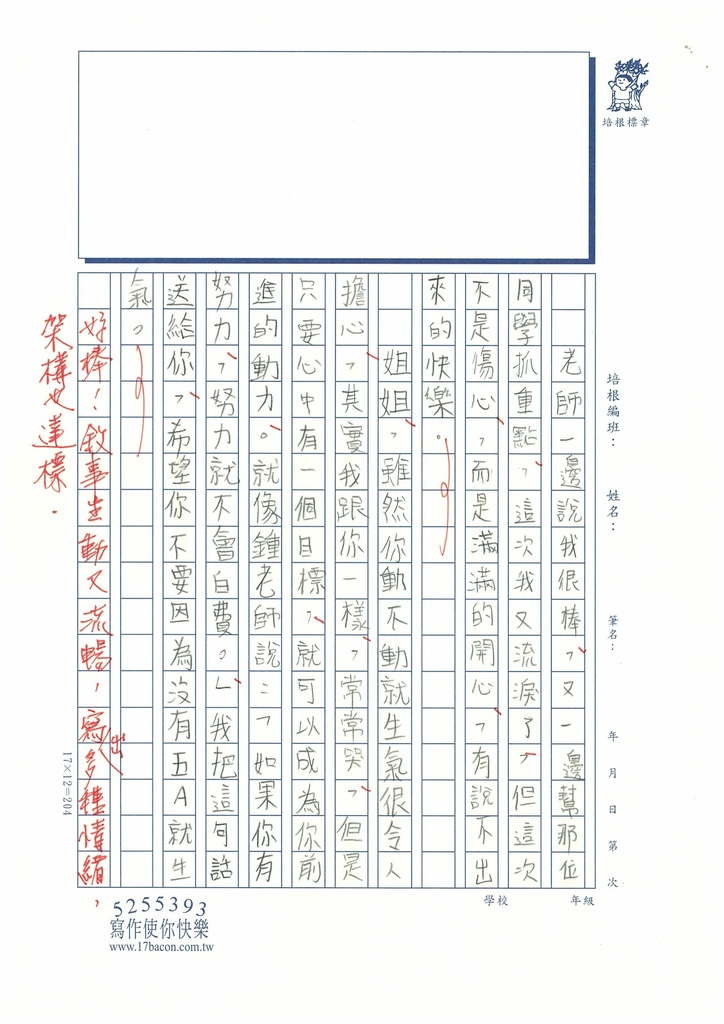 培根標章
培根編班： 姓名： 筆名： 年 月 日 第 次
老師一邊說我很棒，又一邊幫那位
同學抓重點，這次我又流淚了，但這次
不是傷心，而是滿滿的開心，有說不出
來的快樂。
姐姐，雖然你動不動就生氣很令人
擔心，其實我跟你一樣，常常哭，但是
只要心中有一個目標，就可以成為你前
進的動力。就像鍾老師說：「如果你有
努力，努力就不會白費。」我把這句話
送給你，希望你不要因為沒有五A就生
氣。
好棒！敘事生動又流暢，寫出多種情緒，
架構也達標．
17×12=204
學校 年級
5255393
寫作使你快樂
www.17bacon.com.tw